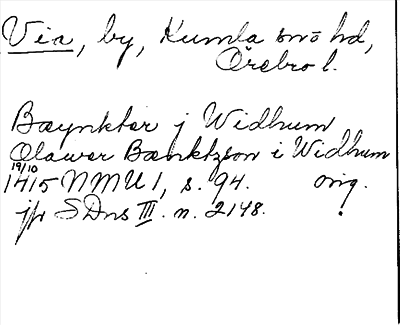 Via, by, Kumla snö hd,
Örebro l.
Baynkter j Widhum
Olawer Bænktzson i Widhum
19/10
1415 NMU 1, s. 94. orig.
jfr SDns III. n. 2148. !